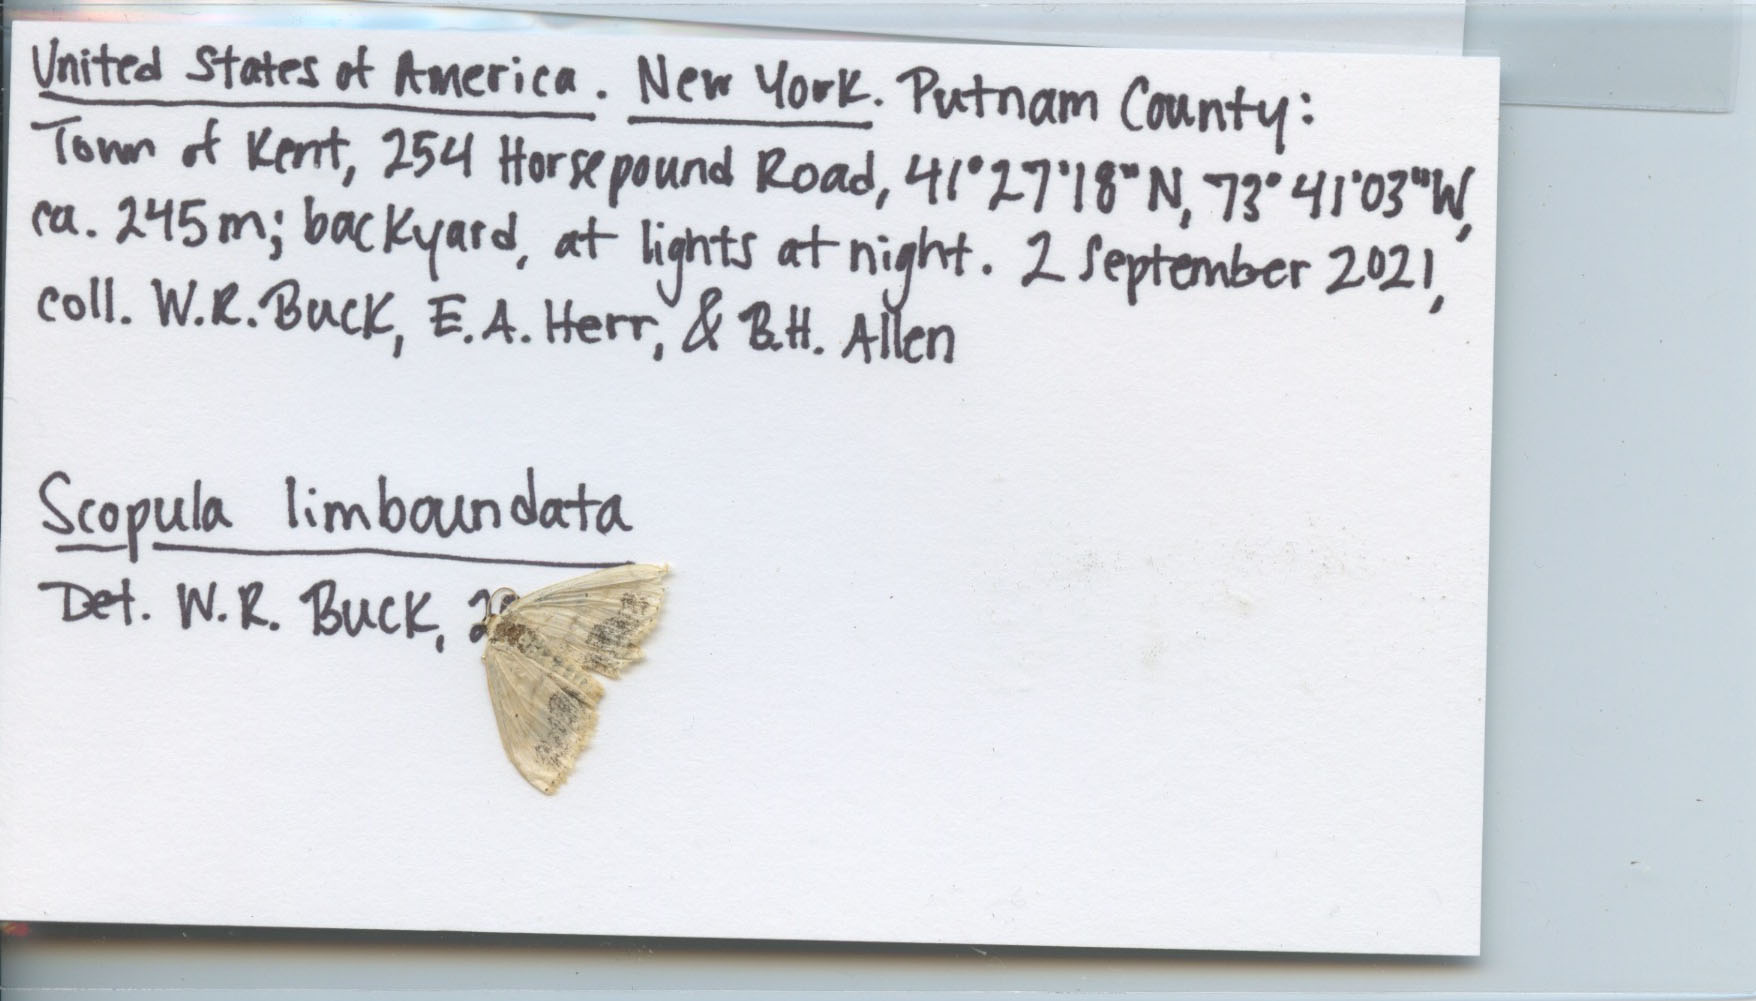 United States of America. New York. Putnam County:
Town of Kent, 254 Horsepound Road, 41°27'18"N, 73°41'03"W,
ca. 245m; backyard, at lights at night. 2 September 2021,
coll. W.R. Buck, E.A. Herr, & B.H. Allen
Scopula limboundata
Det. W.R. Buck,